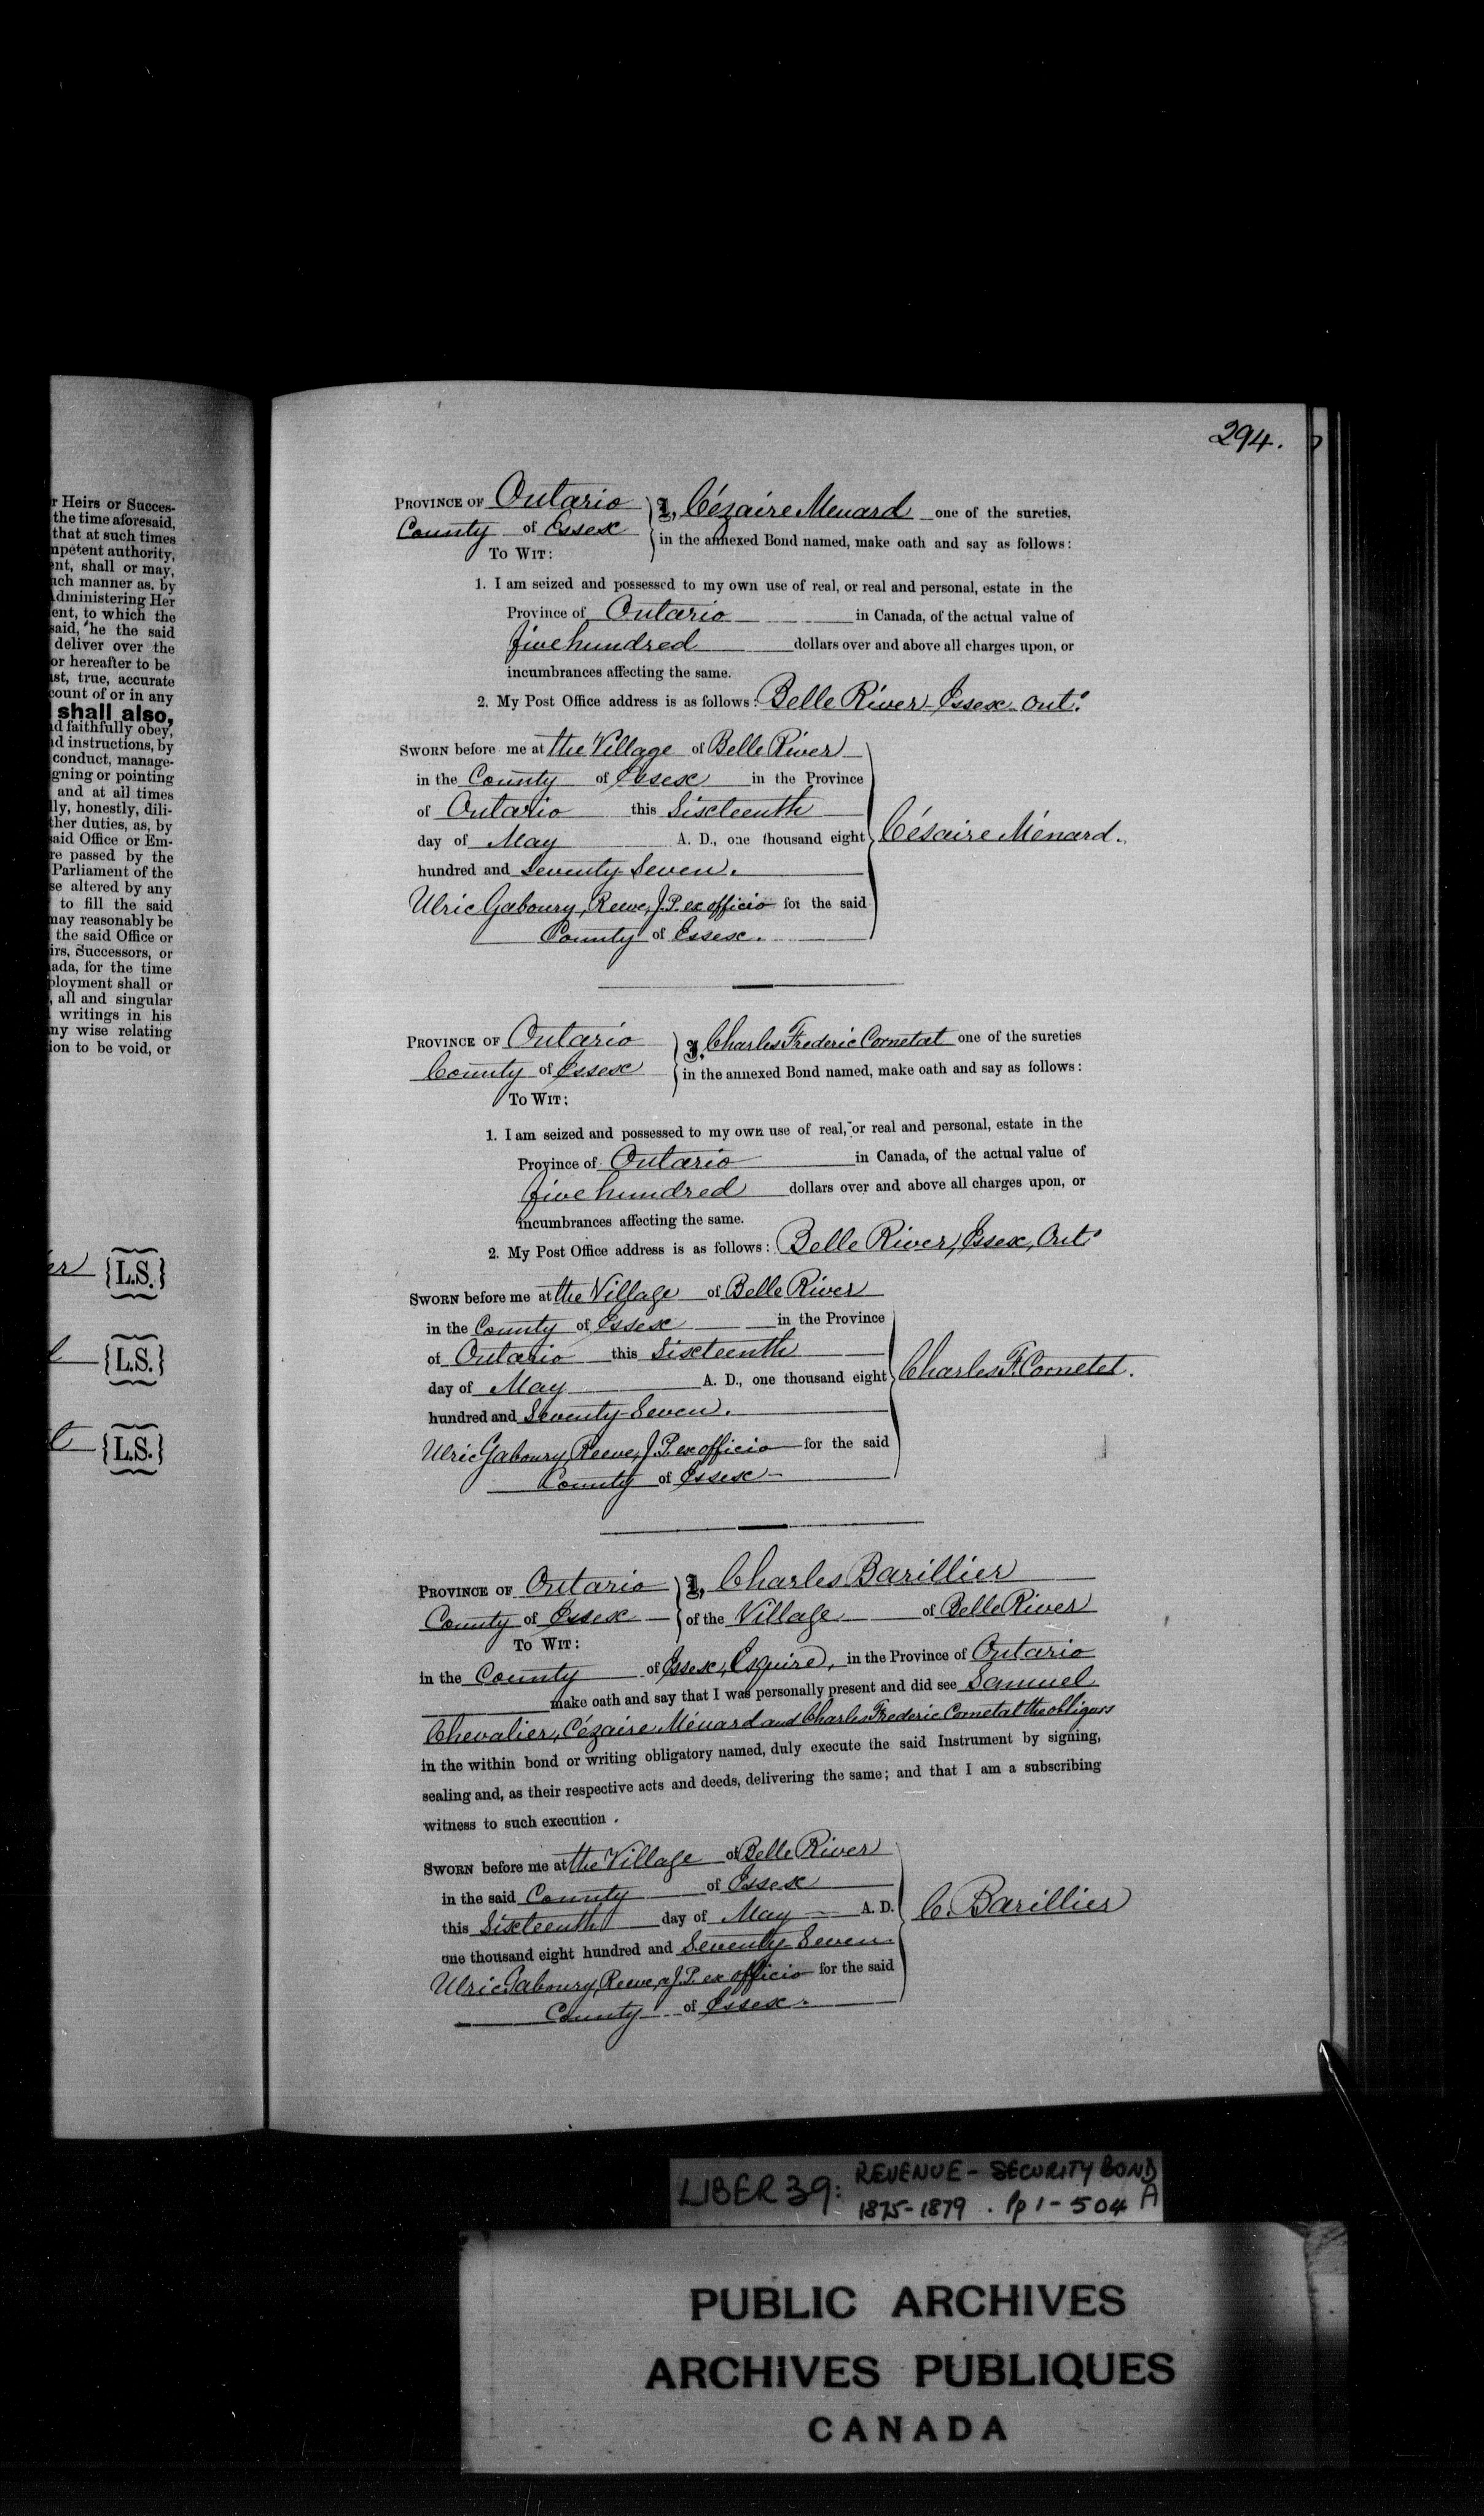 r Heirs or Succes-
the time aforesaid,
that at such times
npetent authority,
ent, shall or may,
uch manner as, by
dministering Her
ent, to which the
said, he the said
deliver over the
or hereafter to be
ust, true, accurate
count of or in any
shall also,
d faithfully obey,
d instructions, by
conduct, manage-
gning or pointing
and at all times
lly, honestly, dili-
ther duties, as, by
said Office or Em-
re passed by the
Parliament of the
se altered by any
to fill the said
nay reasonably be
the said Office or
irs, Successors, or
ada, for the time
ployment shall or
, all and singular
writings in his
ny wise relating
ion to be void, or
er {L.S.}
{L.S.}
{L.S.}
294.
PROVINCE OF Ontario I, Cézaire Menard one of the sureties,
County of Essex in the annexed Bond named, make oath and say as follows:
TO WIT:
1. I am seized and possessed to my own use of real, or real and personal, estate in the
Province of Ontario in Canada, of the actual value of
five hundred dollars over and above all charges upon, or
incumbrances affecting the same.
2. My Post Office address is as follows: Belle River Essex Ont.
SWORN before me at the Village of Belle River
in the County of Essex in the Province
of Ontario this Sixteenth
day of May A. D., one thousand eight Césaire Ménard.
hundred and Seventy Seven.
Ulric Gaboury, Reeve, J.P. ex officio for the said
County of Essex.
PROVINCE OF Ontario I, Charles Frederic Cometat one of the sureties
County of Essex in the annexed Bond named, make oath and say as follows:
TO WIT:
1. I am seized and possessed to my own use of real, or real and personal, estate in the
Province of Ontario in Canada, of the actual value of
five hundred dollars over and above all charges upon, or
incumbrances affecting the same.
2. My Post Office address is as follows: Belle River, Essex, Ont.
SWORN before me at the Village of Belle River
in the County of Essex in the Province
of Ontario this Sixteenth
day of May A. D., one thousand eight Charles F. Cometet.
hundred and Seventy-Seven.
Ulric Gaboury, Reeve, J.P. ex officio for the said
County of Essex
PROVINCE OF Ontario I, Charles Barillier
County of Essex of the Village of Belle River
TO WIT:
in the County of Essex, Esquire, in the Province of Ontario
make oath and say that I was personally present and did see Samuel
Chevalier, Cézaire Ménard and Charles Frederic Cometat the obligors
in the within bond or writing obligatory named, duly execute the said Instrument by signing,
sealing and, as their respective acts and deeds, delivering the same; and that I am a subscribing
witness to such execution.
SWORN before me at the Village of Belle River
in the said County of Essex
this Sixteenth day of May A. D. C. Barillier
one thousand eight hundred and Seventy Seven
Ulric Gaboury, Reeve, a J.P. ex officio for the said
County of Essex.
LIBER 39: REVENUE - SECURITY BOND
1875-1879 . Pp 1-504 A
PUBLIC ARCHIVES
ARCHIVES PUBLIQUES
CANADA